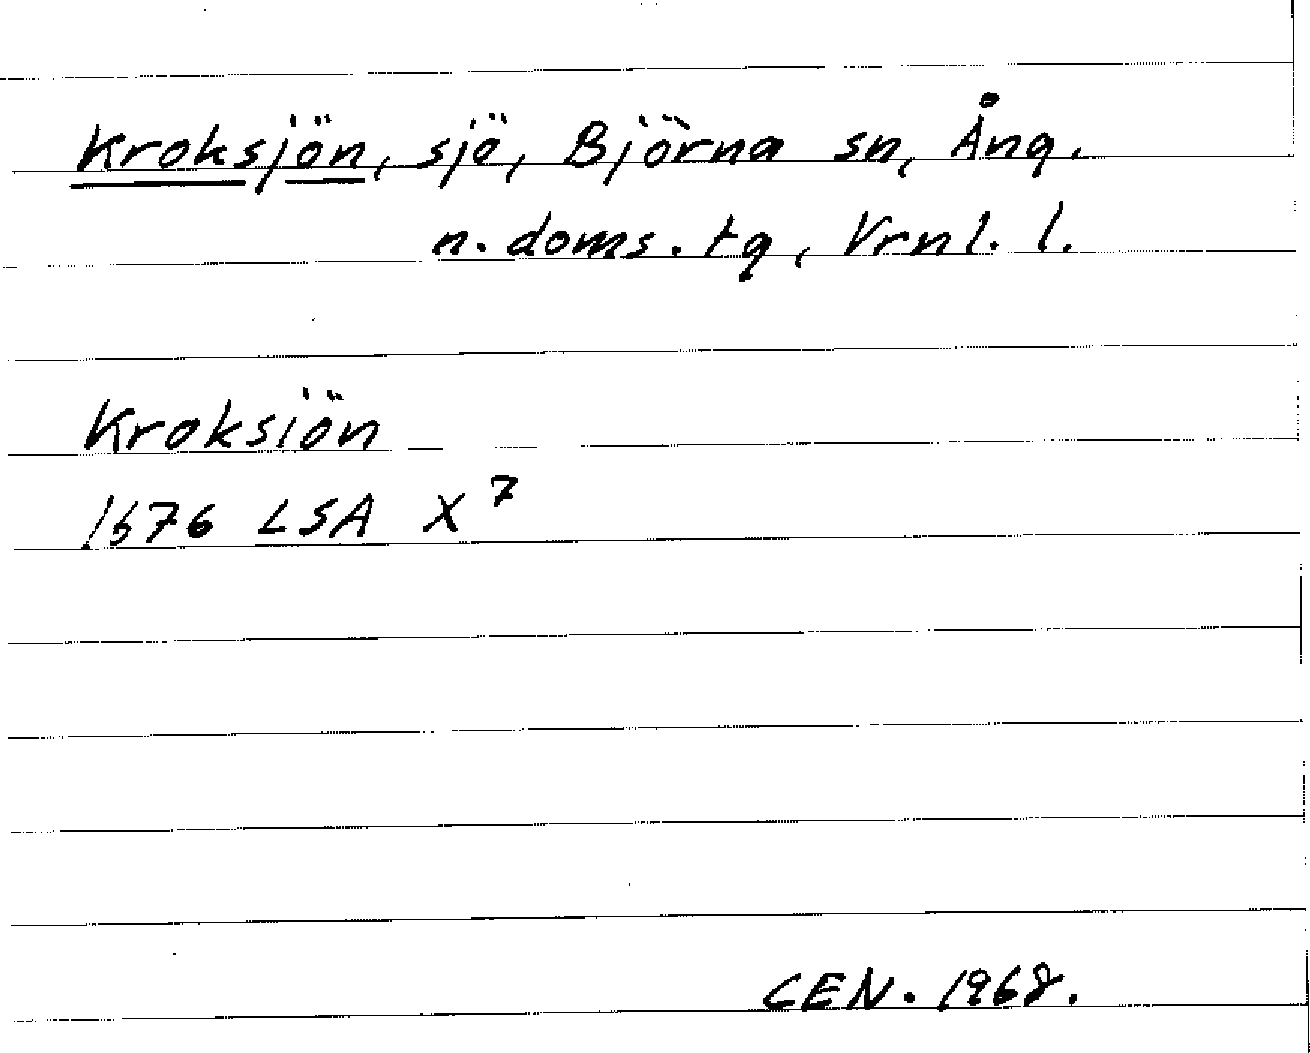 Kroksjön, sjö, Björna sn, Ång.
n. doms. tg, Vrnl. l.
Kroksiön
1676 LSA X⁷
CEN. 1968.